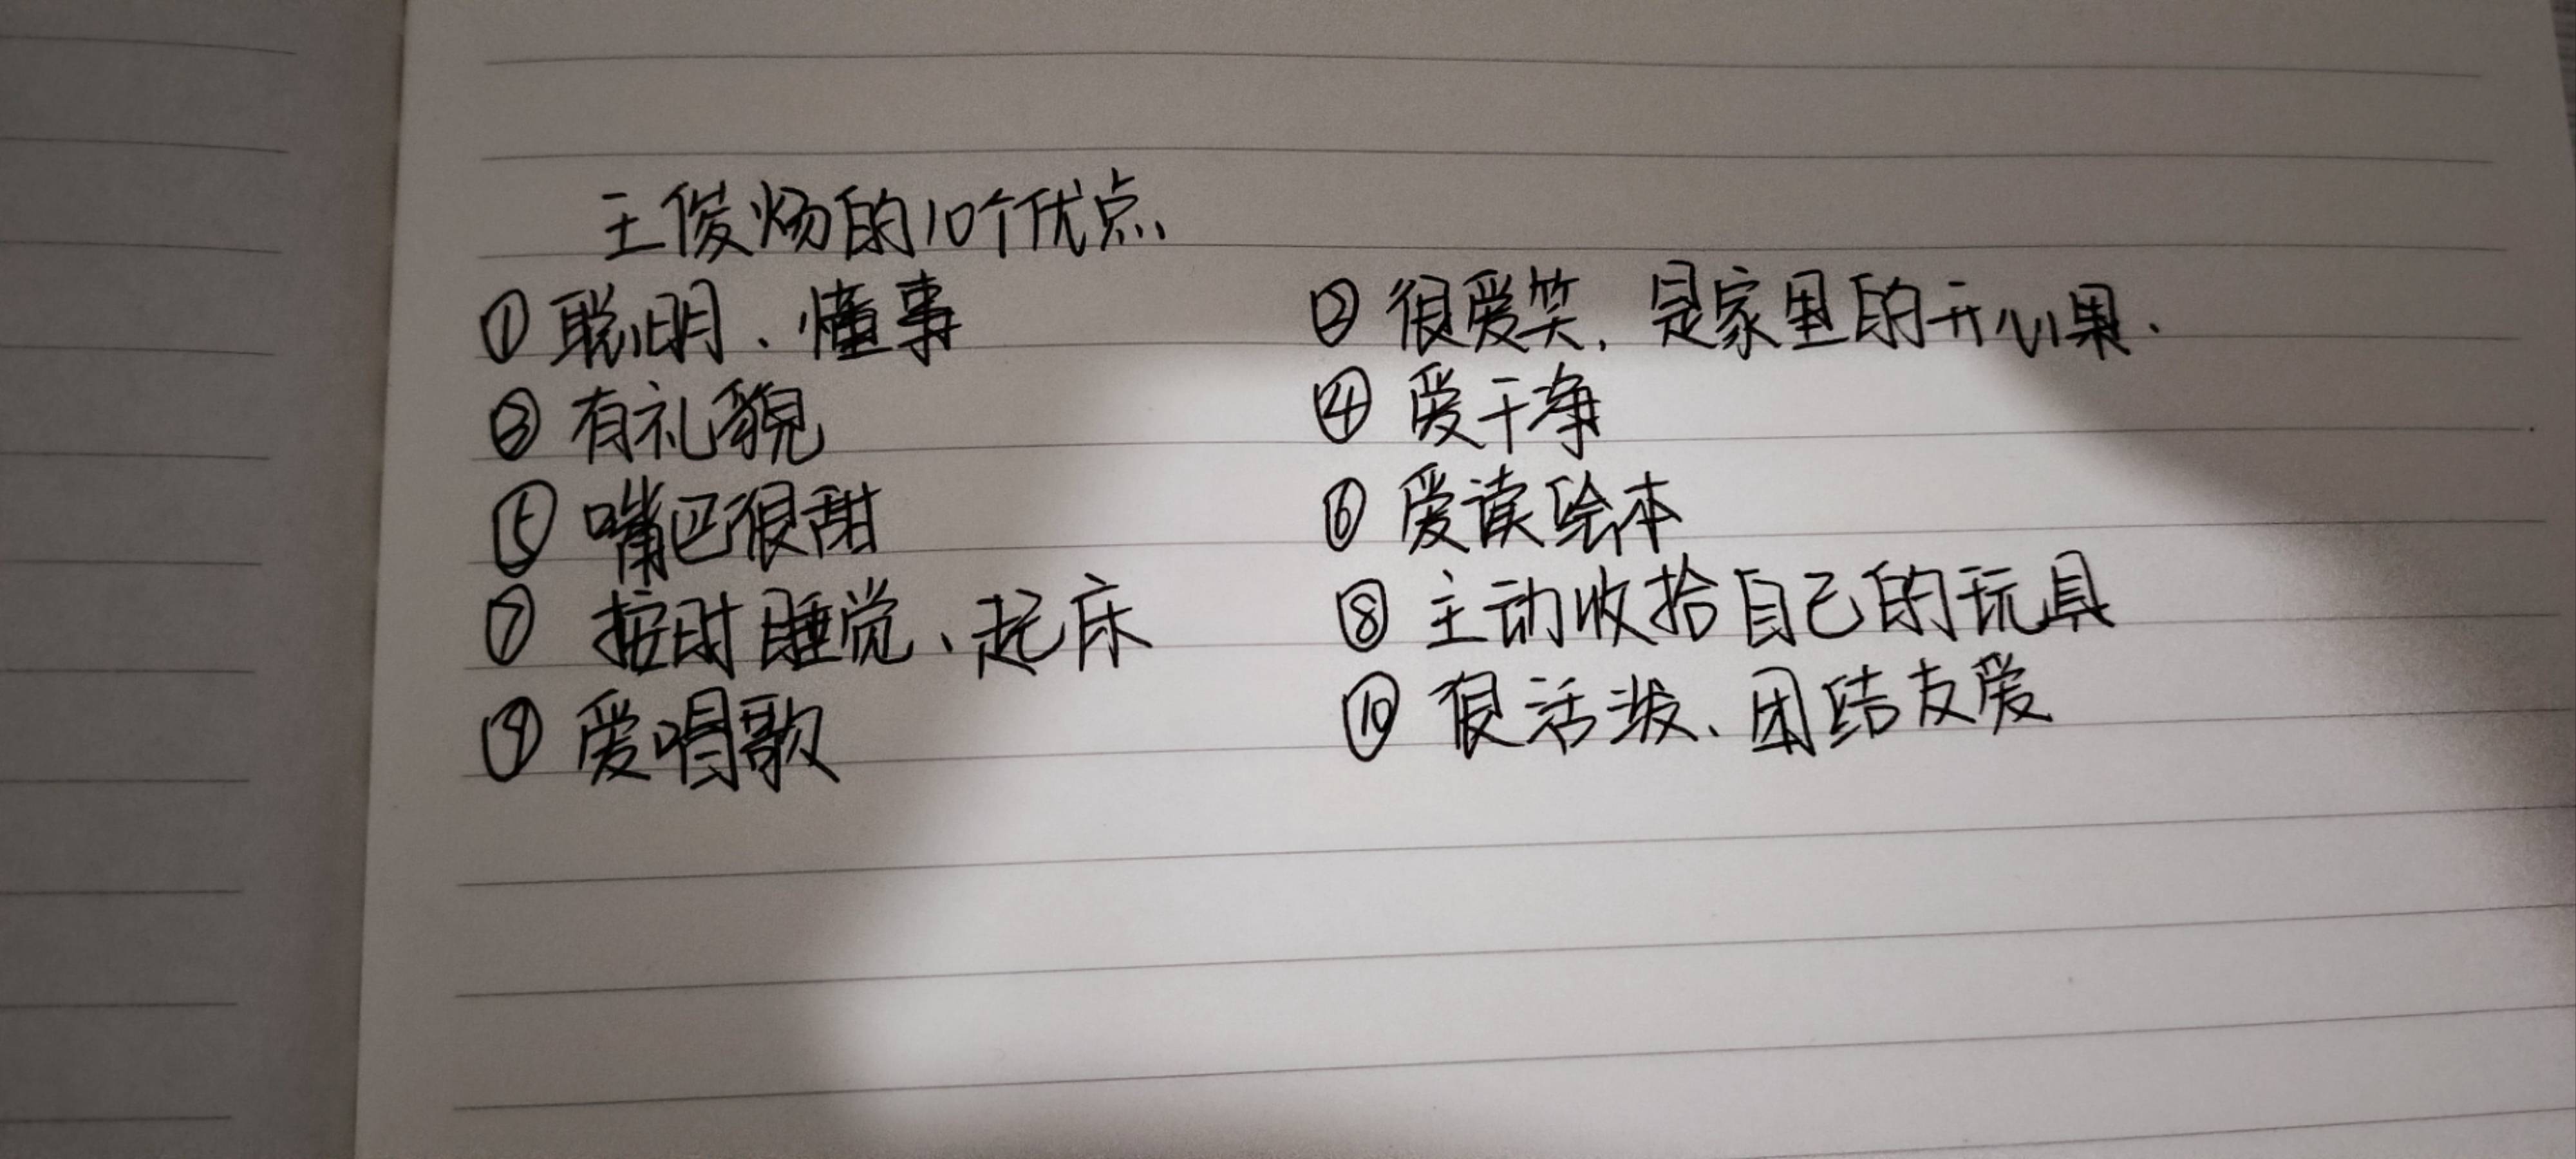 王俊炀的10个优点
①聪明、懂事 ②很爱笑，是家里的开心果.
③有礼貌 ④爱干净
⑤嘴巴很甜 ⑥爱读绘本
⑦按时睡觉、起床 ⑧主动收拾自己的玩具
⑨爱唱歌 ⑩很活泼、团结友爱